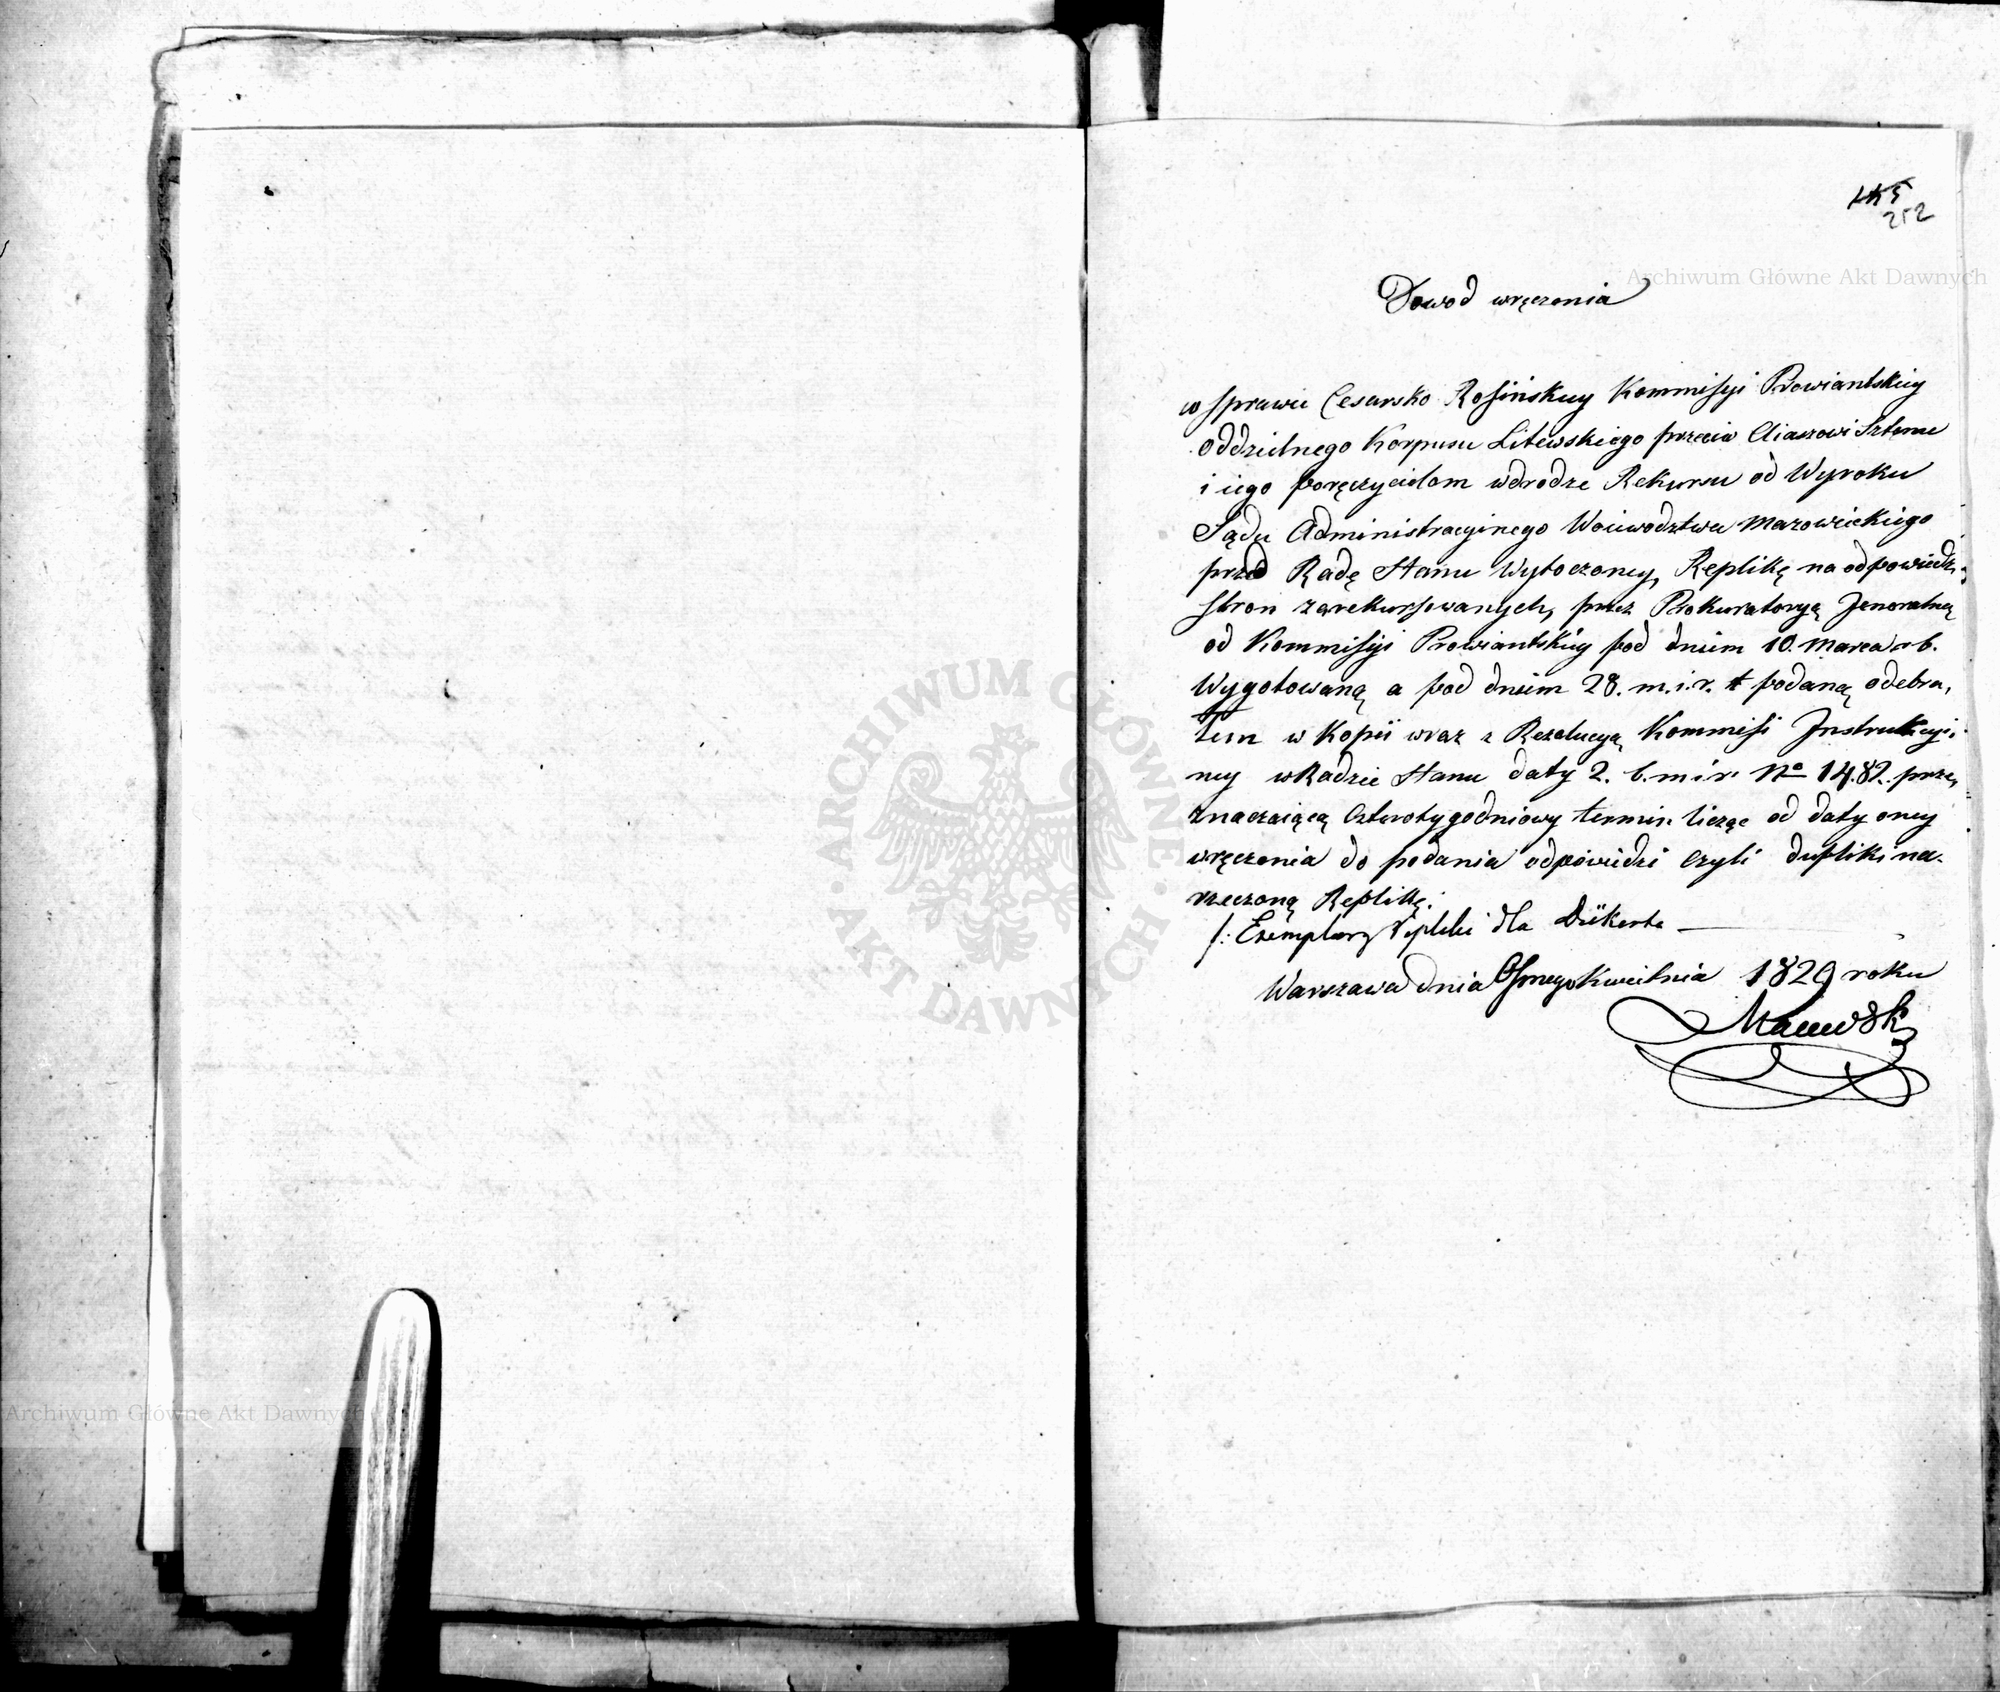 252
Dowod wręczenia
w sprawie Cesarsko Rosińskiey Kommisyi Prowiantskiey
oddzielnego Korpusu Litewskiego przeciw Eliaszowi Szterne
i iego poręczycielom wdrodze Rekursu od Wyroku
Sądu Administracyinego Woiewodztwa Mazowieckiego
przed Radę Stanu Wytoczoney, Replikę na odpowiedź
stron zarekursowanych, przez Prokuratoryą Jeneralną
od Kommisyi Prowiantskiey pod dniem 10. Marca r b.
Wygotowaną a pod dniem 28. m. i. r. podaną odebra,
łem w Kopii wraz z Rezolucyą Kommisi Instrukcyi
ney wRadzie Stanu daty 2. b. m i r. No 1482. prze,
znaczaiącą czterotygodniowy termin licząc od daty oney
wręczenia do podania odpowiedzi czyli dupliki na
rzeczoną Replikę.
/: Exemplarz repliki dla Dükerta
Warszawa dnia Osmego Kwietnia 1829 roku
Archiwum Główne Akt Dawnych
ARCHIWUM GŁÓWNE · AKT DAWNYCH ·
Archiwum Główne Akt Dawnych